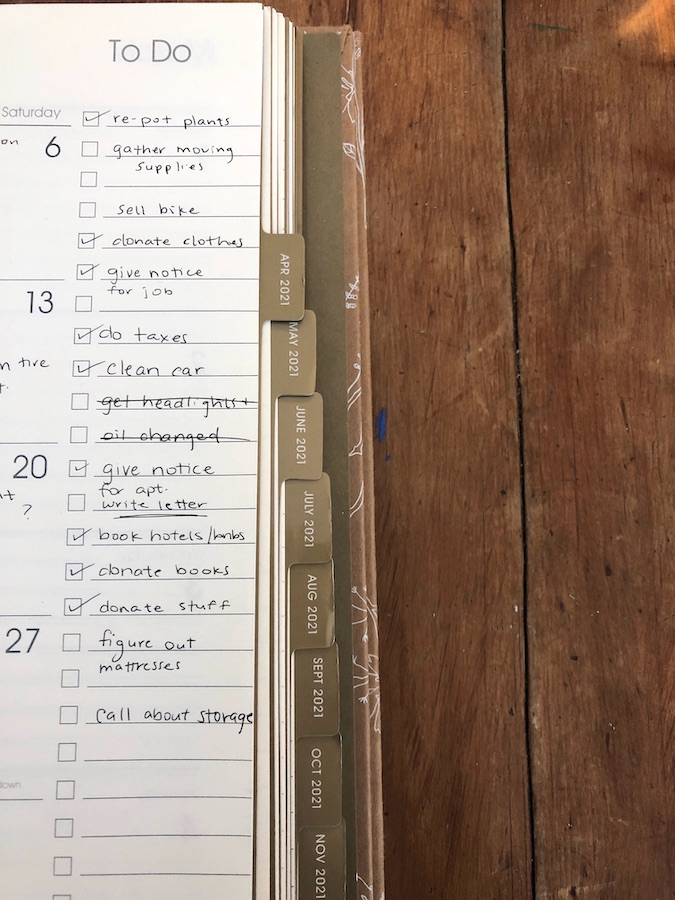 To Do
Saturday
on
6
re-pot plants
gather moving
supplies
sell bike
donate clothes
give notice
for job
13
do taxes
clean car
get headlights +
oil changed
20
give notice
for apt.
?
write letter
book hotels/bnbs
donate books
donate stuff
27
figure out
mattresses
call about storage
down
APR 2021
MAY 2021
JUNE 2021
JULY 2021
AUG 2021
SEPT 2021
OCT 2021
NOV 2021